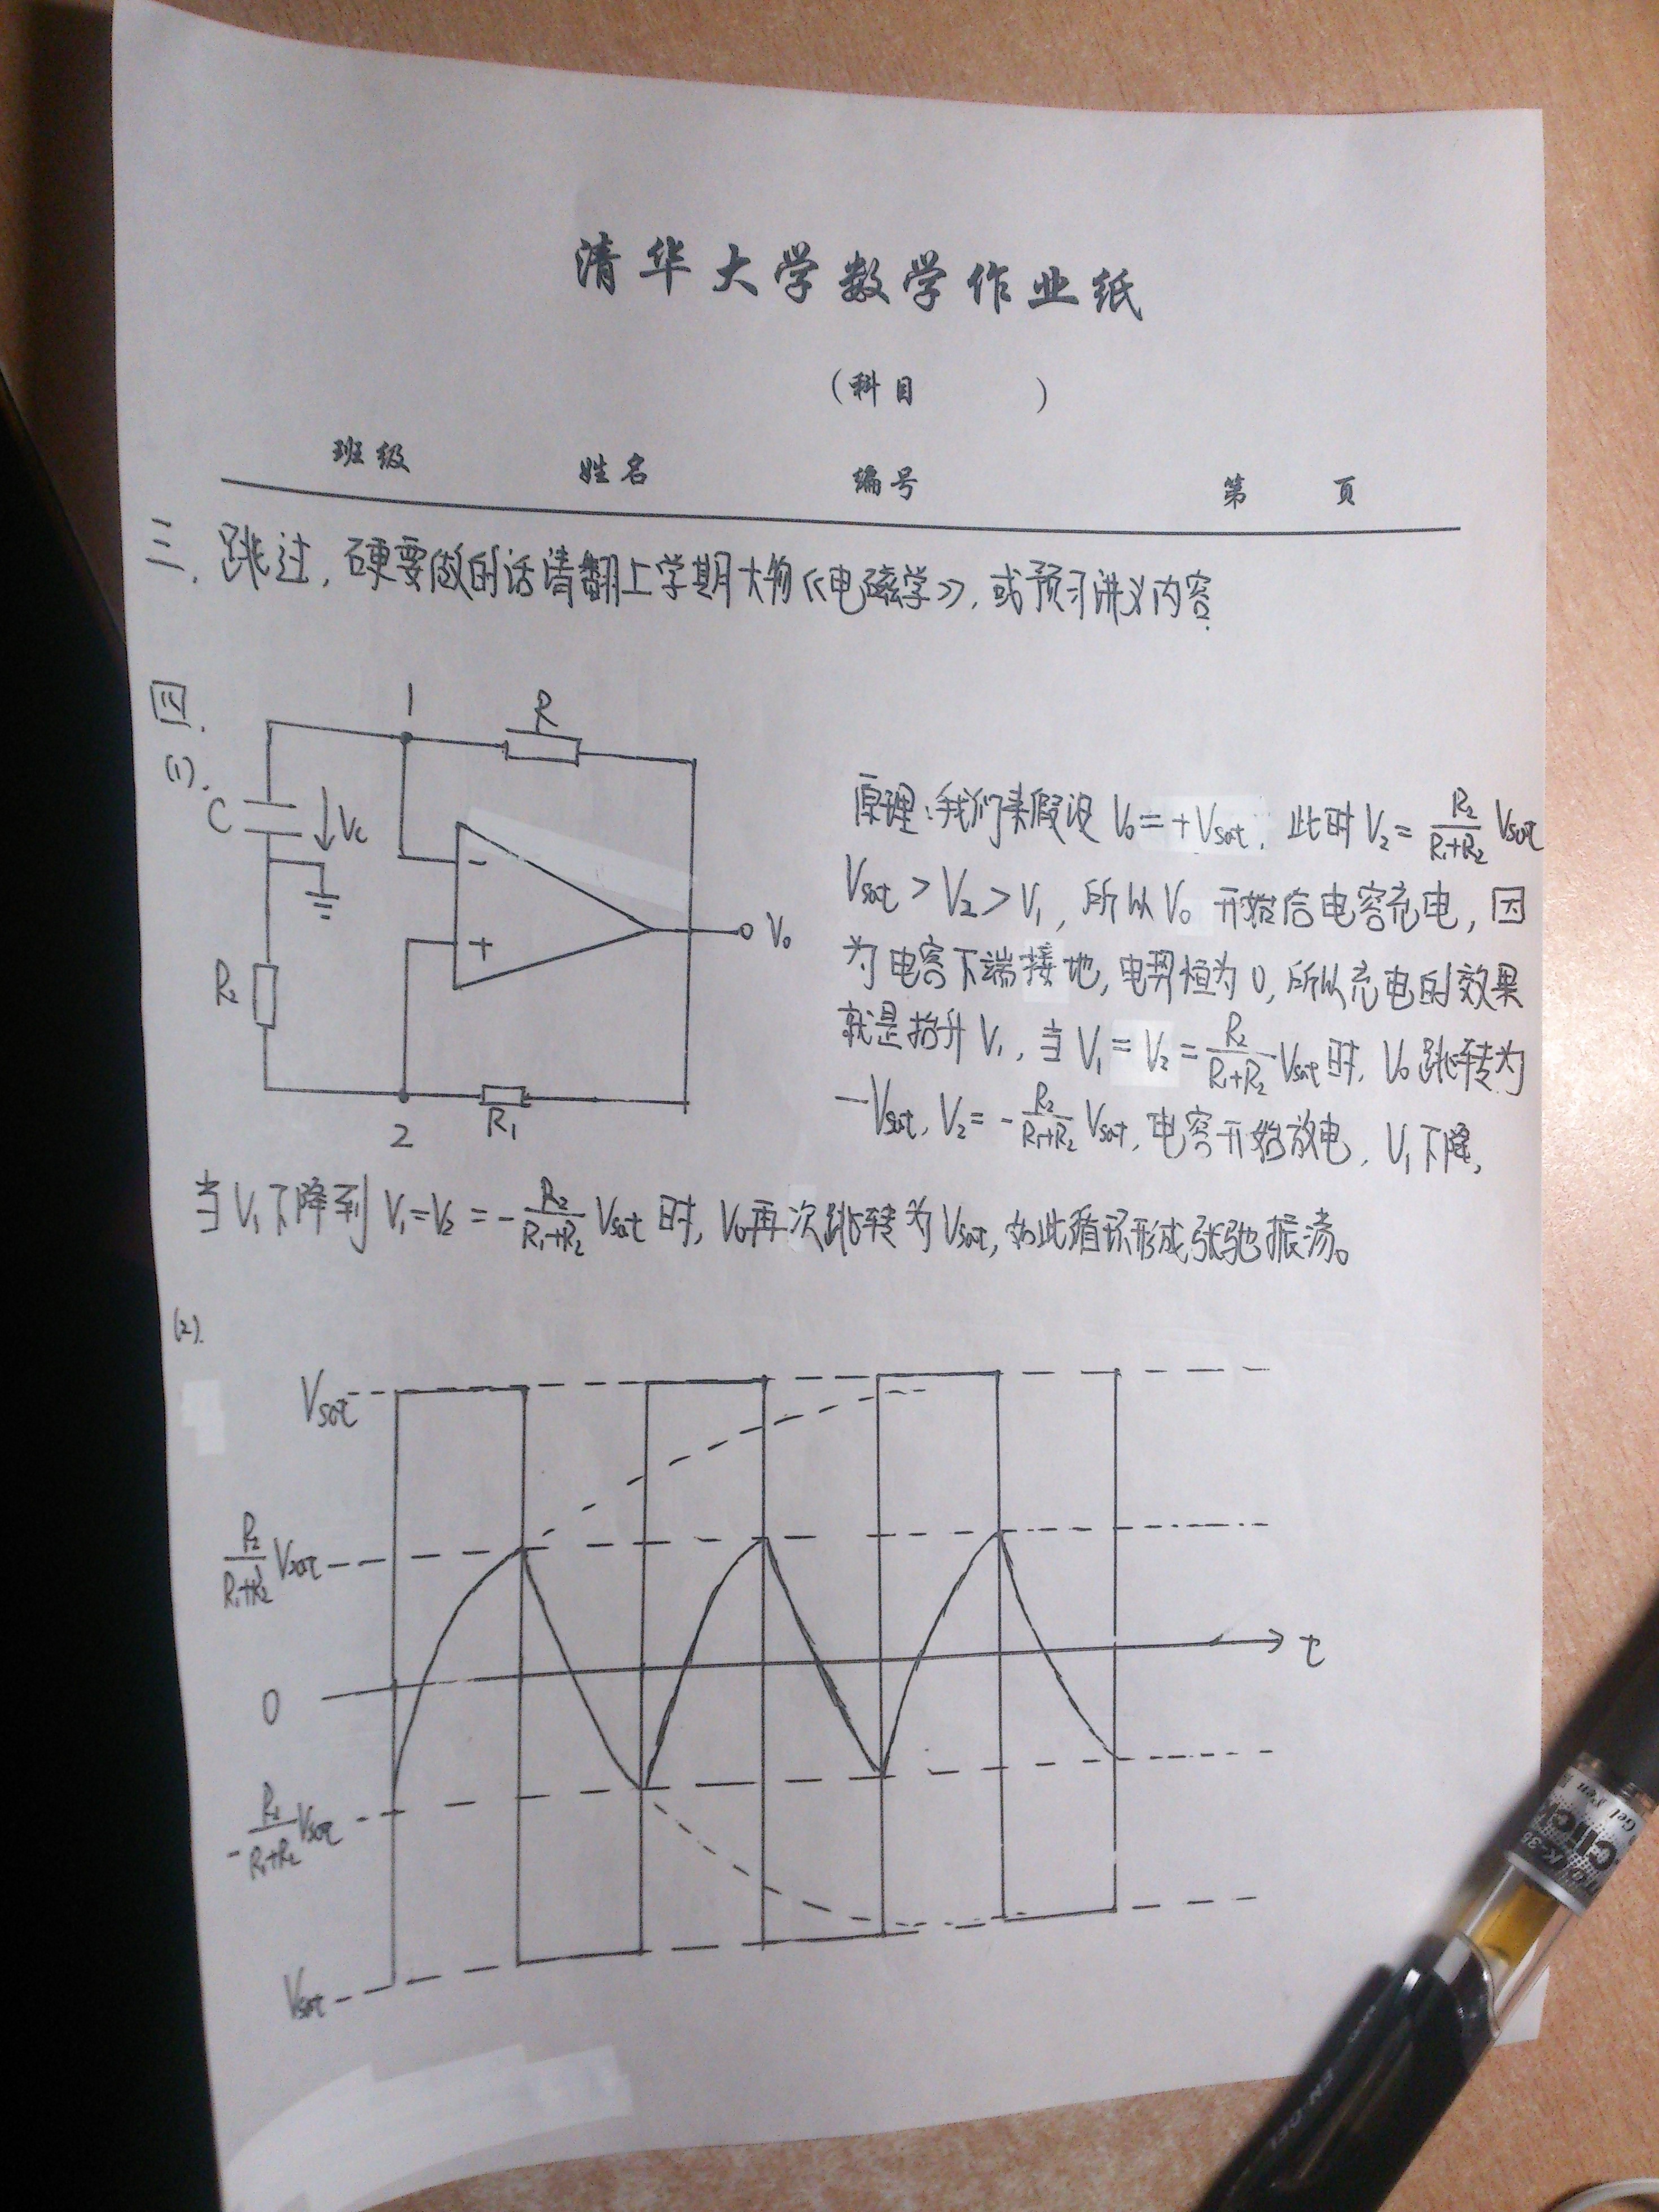 清华大学数学作业纸
(科目 )
班级 姓名 编号 第 页
三. 跳过, 硬要做的话请翻上学期大物《电磁学》, 或预习讲义内容.
四.
(1).
1
R
C
Vc
-
+
V₀
R₂
R₁
2
原理:我们来假设 V₀=+Vsat. 此时 V₂=R₂/(R₁+R₂) Vsat
Vsat>V₂>V₁, 所以 V₀ 开始后电容充电, 因
为电容下端接地, 电势恒为 0, 所以充电的效果
就是抬升 V₁, 当 V₁=V₂=R₂/(R₁+R₂) Vsat时, V₀ 跳转为
-Vsat, V₂=-R₂/(R₁+R₂) Vsat, 电容开始放电, V₁下降,
当 V₁下降到 V₁=V₂=-R₂/(R₁+R₂) Vsat 时, V₀再次跳转为 Vsat, 如此循环形成张驰振荡。
(2).
Vsat
R₂/(R₁+R₂) Vsat
t
0
-R₂/(R₁+R₂) Vsat
Vsat
K-35
Gel Pen